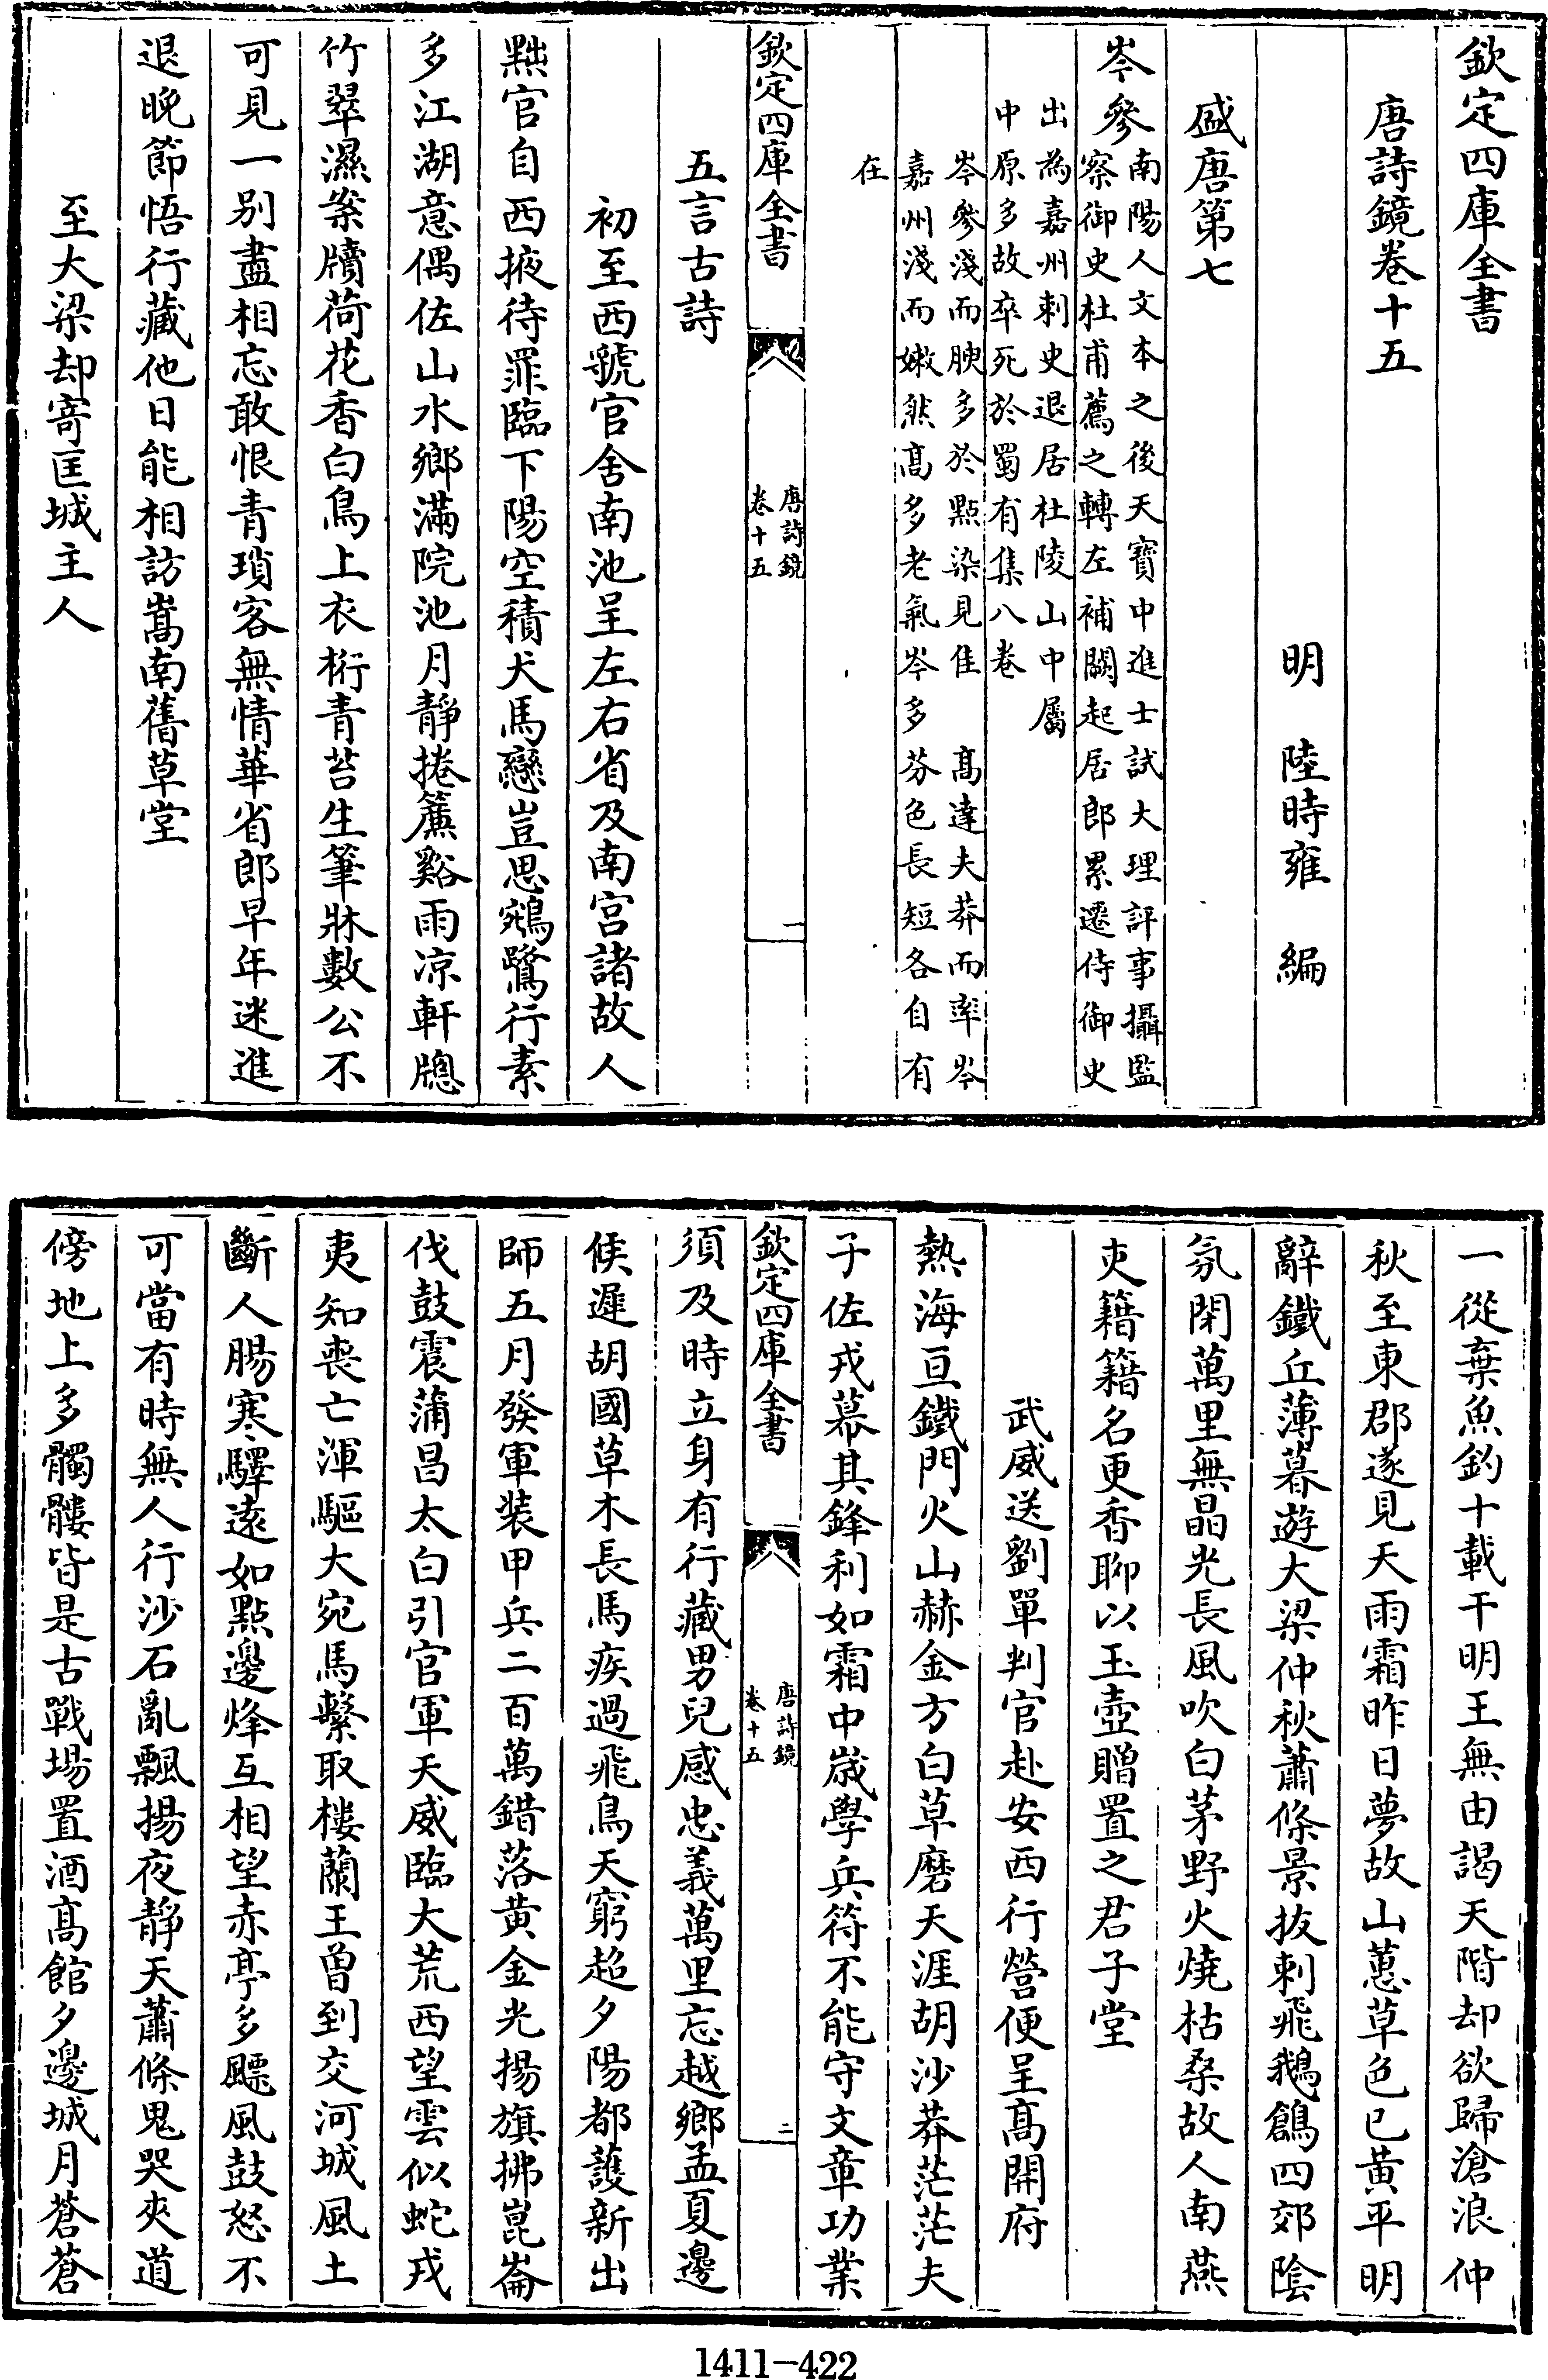 欽定四庫全書
唐詩鏡卷十五
明　陸時雍　編
盛唐第七
岑參南陽人文本之後天寶中進士試大理評事攝監
察御史杜甫薦之轉左補闕起居郎累遷侍御史
出為嘉州刺史退居杜陵山中屬
中原多故卒死於蜀有集八卷
岑參淺而腴多於點染見佳　髙達夫莽而率岑
嘉州淺而嫩然髙多老氣岑多芬色長短各自有
在
欽定四庫全書
唐詩鏡
卷十五
一
五言古詩
初至西虢官舍南池呈左右省及南宫諸故人
黜官自西掖待罪臨下陽空積犬馬戀豈思鵷鷺行素
多江湖意偶佐山水鄉滿院池月靜捲簾谿雨凉軒牕
竹翠濕案牘荷花香白鳥上衣桁青苔生筆牀數公不
可見一别盡相忘敢恨青瑣客無情華省郎早年迷進
退晚節悟行藏他日能相訪嵩南舊草堂
至大梁却寄匡城主人
一從棄魚釣十載干明王無由謁天階却欲歸滄浪仲
秋至東郡遂見天雨霜昨日夢故山蕙草色已黄平明
辭鐵丘薄暮遊大梁仲秋蕭條景拔剌飛鵝鶬四郊陰
氛閉萬里無晶光長風吹白茅野火燒枯桑故人南燕
吏籍籍名更香聊以玉壺贈置之君子堂
武威送劉單判官赴安西行營便呈髙開府
熱海亘鐵門火山赫金方白草磨天涯胡沙莽茫茫夫
子佐戎幕其鋒利如霜中嵗學兵符不能守文章功業
欽定四庫全書
唐詩鏡
卷十五
二
須及時立身有行藏男兒感忠義萬里忘越鄉孟夏邊
候遲胡國草木長馬疾過飛鳥天窮超夕陽都護新出
師五月發軍装甲兵二百萬錯落黄金光揚旗拂崑崙
伐鼓震蒲昌太白引官軍天威臨大荒西望雲似蛇戎
夷知喪亡渾驅大宛馬繫取樓蘭王曽到交河城風土
斷人腸寒驛逺如點邊烽互相望赤亭多飃風鼓怒不
可當有時無人行沙石亂飄揚夜靜天蕭條鬼哭夾道
傍地上多髑髏皆是古戰場置酒髙館夕邊城月蒼蒼
1411—422